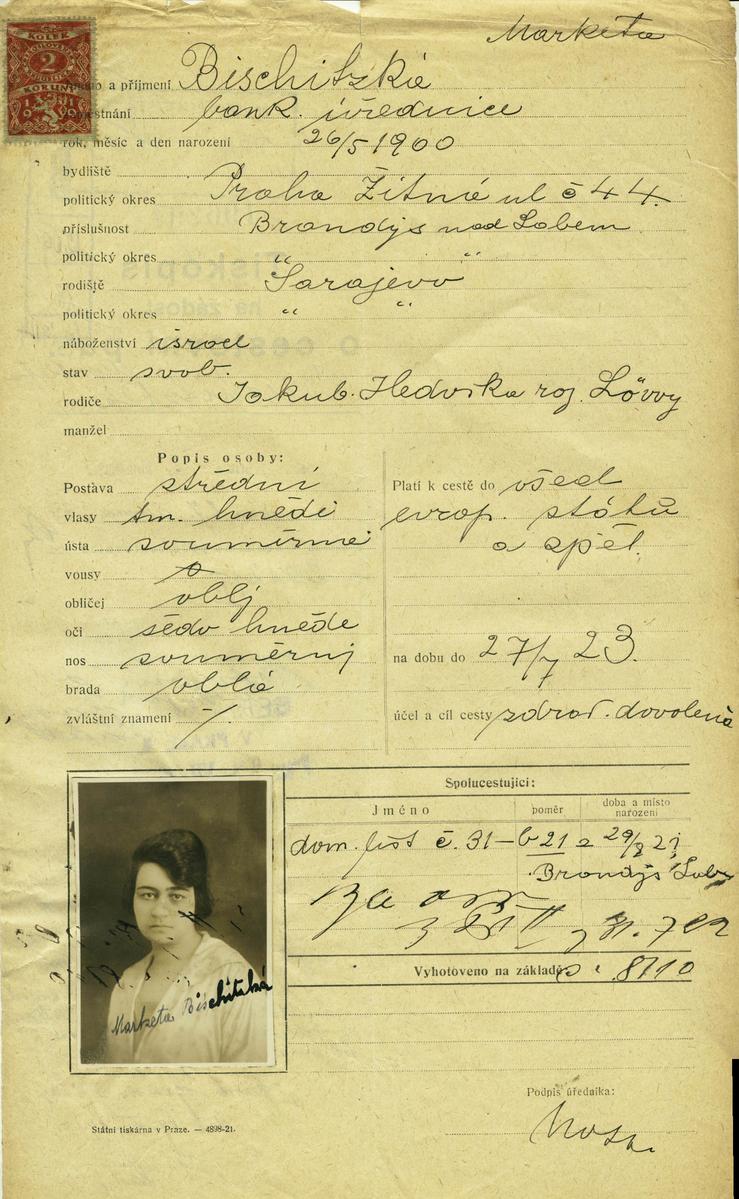 Markéta
KOLEK
2
KORUNY
19 19
jméno a příjmení Bischitzká
zaměstnání bank. úřednice
rok, měsíc a den narození 26/5 1900
bydliště
politický okres Praha Žitná ul č 44.
příslušnost Brandýs nad Labem
politický okres " "
rodiště Sarajevo
politický okres " "
náboženství israel
stav svob.
rodiče Jakub. Hedvika roz. Lövvy
manžel
Popis osoby:
Postava střední
vlasy tm. hnědé
ústa souměrné
vousy
obličej oblý
oči šedo hnědé
nos souměrný
brada oblá
zvláštní znamení /.
Platí k cestě do všech
evrop. států
a zpět.
na dobu do 27/7 23.
účel a cíl cesty zdrav. dovolená
Spolucestující:
Jméno poměr doba a místo narození
dom. list č. 31 – b 21 z 29/8 21
Brandýs Lab
31. 7 22
Vyhotoveno na základě 8110
Markéta Bischitzká
Podpis úředníka:
Státní tiskárna v Praze. — 4898-21.